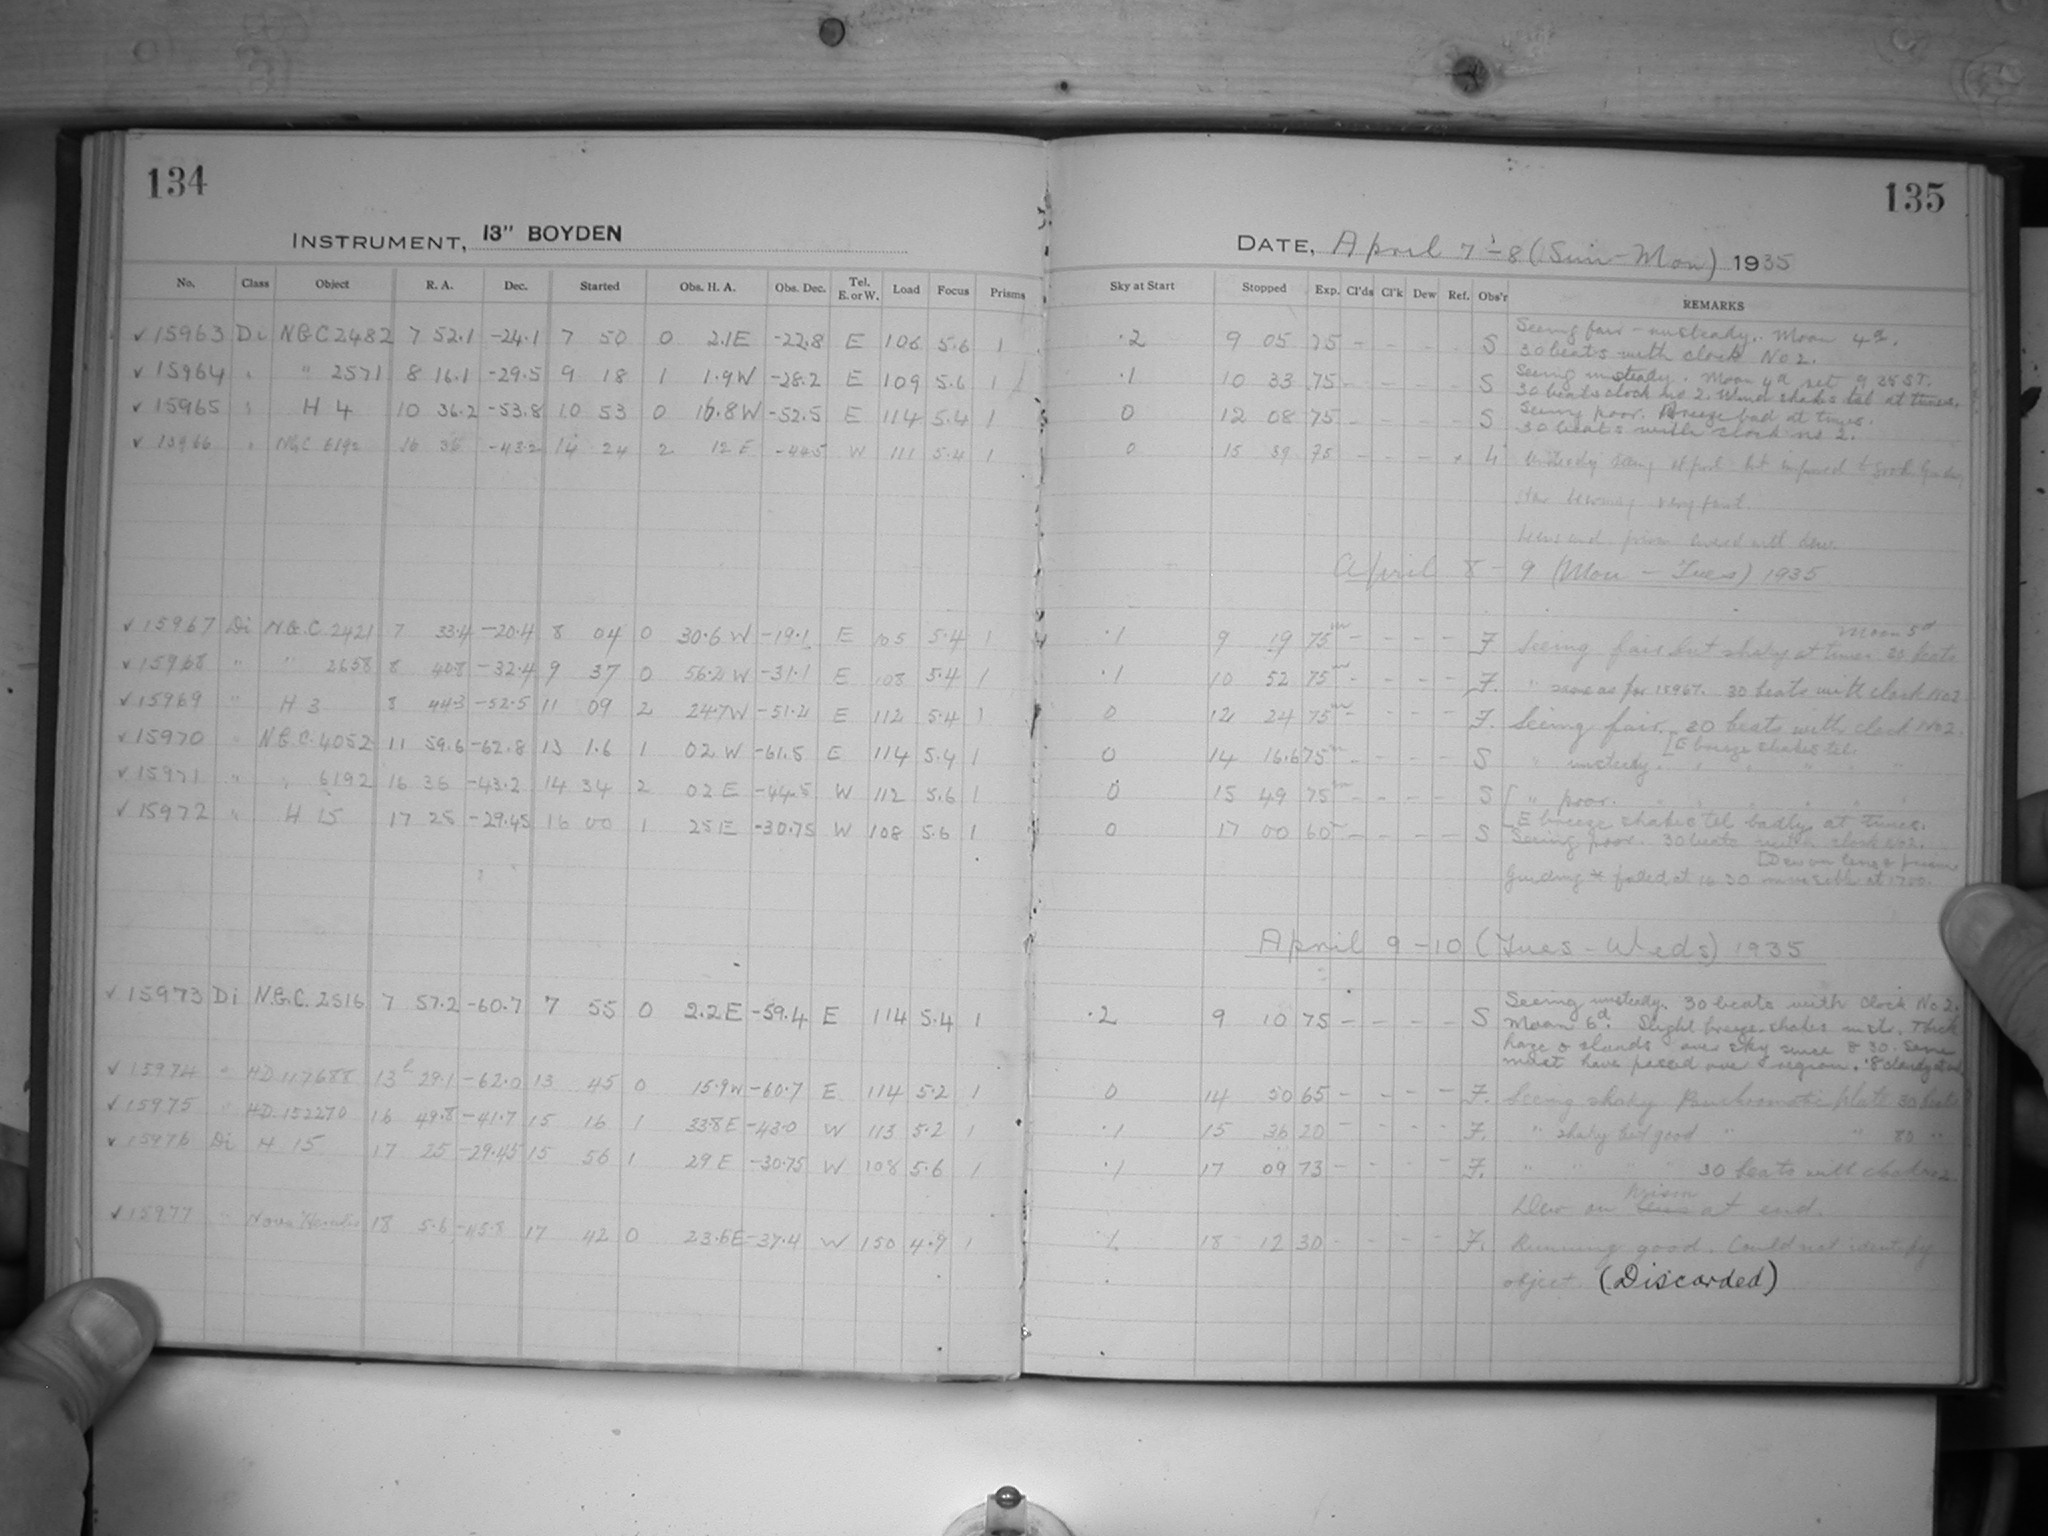 134
INSTRUMENT, 13" BOYDEN
No. Class Object R. A. Dec. Started Obs. H. A. Obs. Dec. Tel. E. or W. Load Focus Prisms
✓ 15963 Di NGC 2482 7 52.1 -24.1 7 50 0 2.1E -22.8 E 106 5.6 1
✓ 15964 " " 2571 8 16.1 -29.5 9 18 1 1.9W -28.2 E 109 5.6 1
✓ 15965 " H 4 10 36.2 -53.8 10 53 0 16.8W -52.5 E 114 5.4 1
✓ 15966 " NGC 6192 16 36 -43.2 14 24 2 12 E -44.5 W 111 5.4 1
✓ 15967 Di N.G.C. 2421 7 33.4 -20.4 8 04 0 30.6 W -19.1 E 105 5.4 1
✓ 15968 " " 2658 8 40.8 -32.4 9 37 0 56.2 W -31.1 E 108 5.4 1
✓ 15969 " H 3 8 44.3 -52.5 11 09 2 24.7W -51.2 E 112 5.4 1
✓ 15970 " N.G.C. 4052 11 59.6 -62.8 13 1.6 1 02 W -61.5 E 114 5.4 1
✓ 15971 " " 6192 16 36 -43.2 14 34 2 02 E -44.5 W 112 5.6 1
✓ 15972 " H 15 17 25 -29.45 16 00 1 25 E -30.75 W 108 5.6 1
✓ 15973 Di N.G.C. 2516 7 57.2 -60.7 7 55 0 2.2 E -59.4 E 114 5.4 1
✓ 15974 " HD 117688 13 29.1 -62.0 13 45 0 15.9W -60.7 E 114 5.2 1
✓ 15975 " HD 152270 16 49.8 -41.7 15 16 1 33.8E -43.0 W 113 5.2 1
✓ 15976 Di H 15 17 25 -29.45 15 56 1 29 E -30.75 W 108 5.6 1
✓ 15977 " Nova 18 5.6 -45.8 17 42 0 23.6E -37.4 W 150 4.9 1
135
DATE, April 7-8 (Sun-Mon) 1935
Sky at Start Stopped Exp. Cl'ds Cl'k Dew Ref. Obs'r REMARKS
.2 9 05 75 - - - - S Seeing fair - unsteady. Moon 4d.
30 beats with clock No 2.
.1 10 33 75 - - - - S Seeing unsteady. Moon 4d set 9 35 ST.
30 beats clock no 2. Wind shakes tel at times.
0 12 08 75 - - - - S Seeing poor. Breeze bad at times.
30 beats with clock no 2.
0 15 39 75 - - - Unsteady seeing at first but improved to good.
star very faint.
Lens and prism covered with dew.
April 8 - 9 (Mon - Tues) 1935
Moon 5d
.1 9 19 75m - - - - F Seeing fair but shaky at times 30 beats
.1 10 52 75m - - - - F. " same as for 15967. 30 beats with clock No 2
0 12 24 75m - - - - F. Seeing fair. 30 beats with clock No 2.
[E breeze shakes tel.
0 14 16.6 75m - - - - S " unsteady. " " " " "
0 15 49 75m - - - - S [ " poor. " " " " "
[E breeze shakes tel badly at times.
0 17 00 60m - - - - S Seeing poor. 30 beats with clock no 2.
[Dew on lens & prism
Guiding * faded at 16 30 invisible at 1700.
April 9-10 (Tues-Weds) 1935
.2 9 10 75 - - - - S Seeing unsteady. 30 beats with clock No 2.
Moon 6d. Slight breeze shakes instr. Thick
haze & clouds over sky since 8 30. Some
must have passed over region. .8 cloudy at end
0 14 50 65 - - - - F. Seeing shaky Panchromatic plate 30 beats
.1 15 36 20 - - - - F. " shaky but good " " 80 "
.1 17 09 73 - - - - F. " " " " 30 beats with clock no 2
Dew on prism at end.
.1 18 12 30 - - - - F. Running good. Could not identify
object. (Discarded)